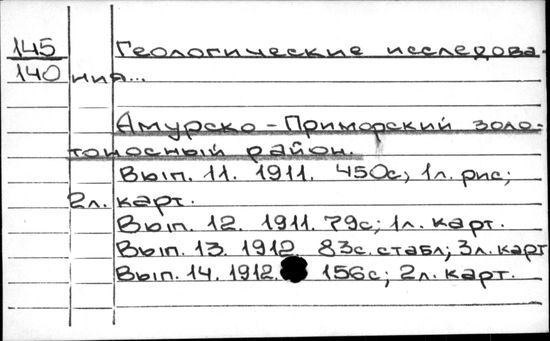 145 Геологические исследова-
140 ния...
Амурско-Приморский золо-
тоносный район.
Вып. 11. 1911. 450с; 1л. рис;
2л. карт.
Вып. 12. 1911. 79с; 1л. карт.
Вып. 13. 1912 83с. стабл; 3л. карт
Вып. 14. 1912. 156с; 2л. карт.